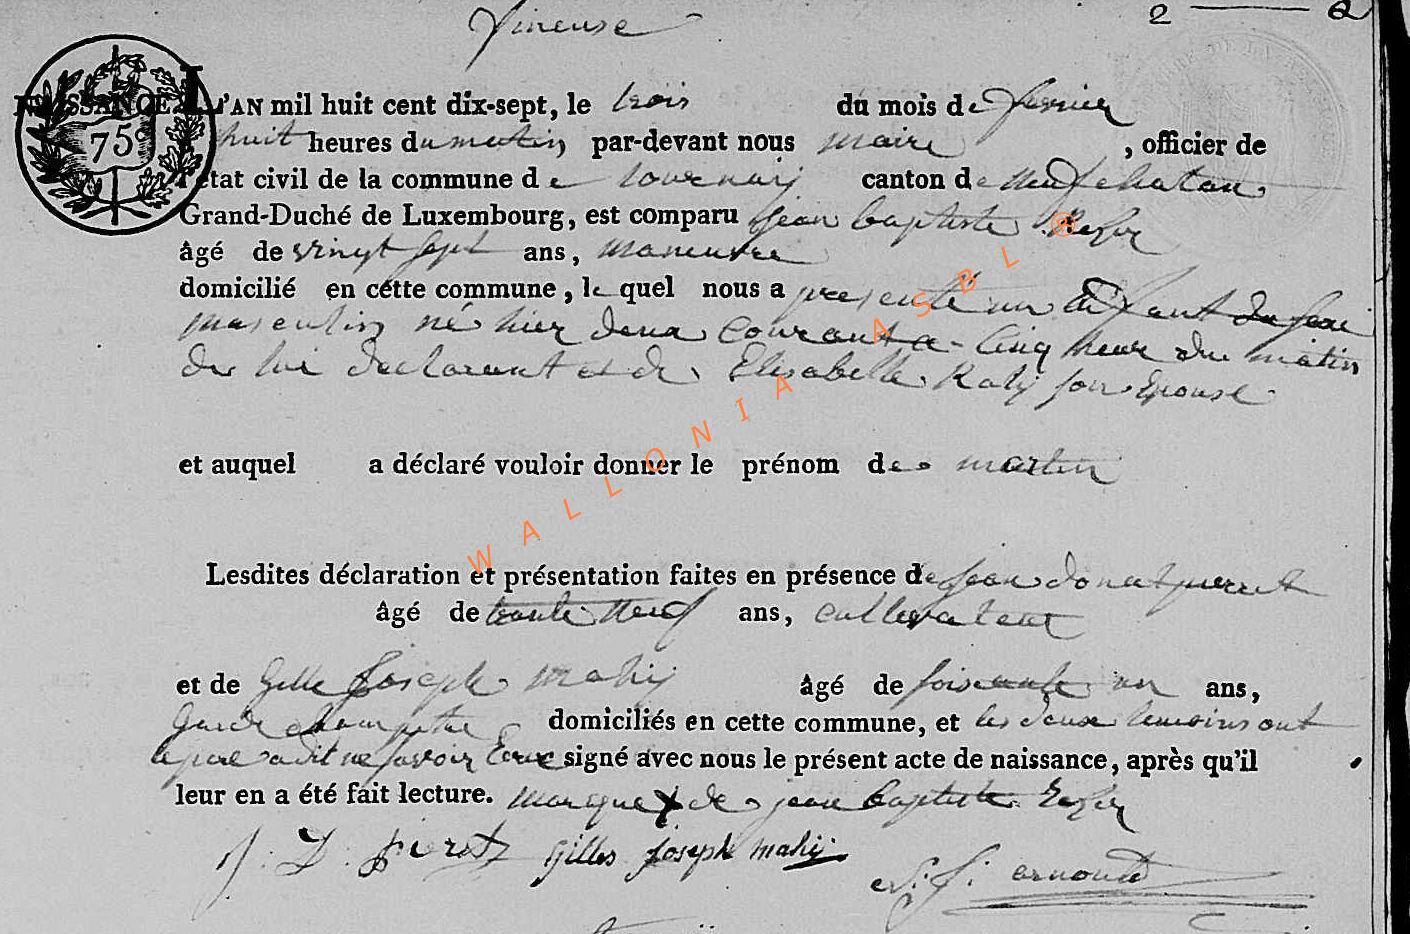 2 2
NAISSANCE L'AN mil huit cent dix-sept, le trois du mois de fevrier
75c huit heures du matin par-devant nous maire , officier de
l'état civil de la commune de tournay canton de neufchatau
Grand-Duché de Luxembourg, est comparu jean baptiste
âgé de vingt sept ans, maneuvre
domicilié en cétte commune, le quel nous a presenté un enfant du sexe
masculin né hier deux courant a cinq heur du matin
de lui declarant et de Elisabelle son Epouse
et auquel a déclaré vouloir donner le prénom de martin
Lesdites déclaration et présentation faites en présence de jean donat pierret
âgé de trante neuf ans, cullevateur
et de Gille joseph mahy âgé de soisante un ans,
garde champetre domiciliés en cette commune, et les deux temoins ont
le pere a dit ne savoir Ecrire signé avec nous le présent acte de naissance, après qu'il
leur en a été fait lecture. marque X de jean baptiste
J: D: pierret gilles joseph mahy. arnould
WALLONIA ASBL ®